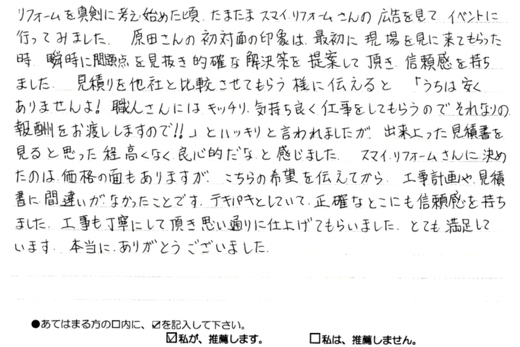 リフォームを真剣に考え始めた頃、たまたまスマイリフォームさんの広告を見て、イベントに
行ってみました。原田さんの初対面の印象は、最初に現場を見に来てもらった
時、瞬時に問題点を見抜き的確な解決策を提案して頂き、信頼感を持ち
ました。見積りを他社と比較させてもらう様に伝えると「うちは安く
ありませんよ!職人さんにはキッチリ、気持ち良く仕事をしてもらうのでそれなりの
報酬をお渡ししますので!!」とハッキリと言われましたが、出来上った見積書を
見ると思った程高くなく良心的だな、と感じました。スマイリフォームさんに決め
たのは価格の面もありますが、こちらの希望を伝えてから、工事計画や見積
書に間違いがなかったことです。テキパキとしていて、正確なとこにも信頼感を持ち
ました。工事も丁寧にして頂き思い通りに仕上げてもらいました。とても満足して
います。本当に、ありがとうございました。
●あてはまる方の□内に、☑を記入して下さい。
☑私が、推薦します。 □私は、推薦しません。